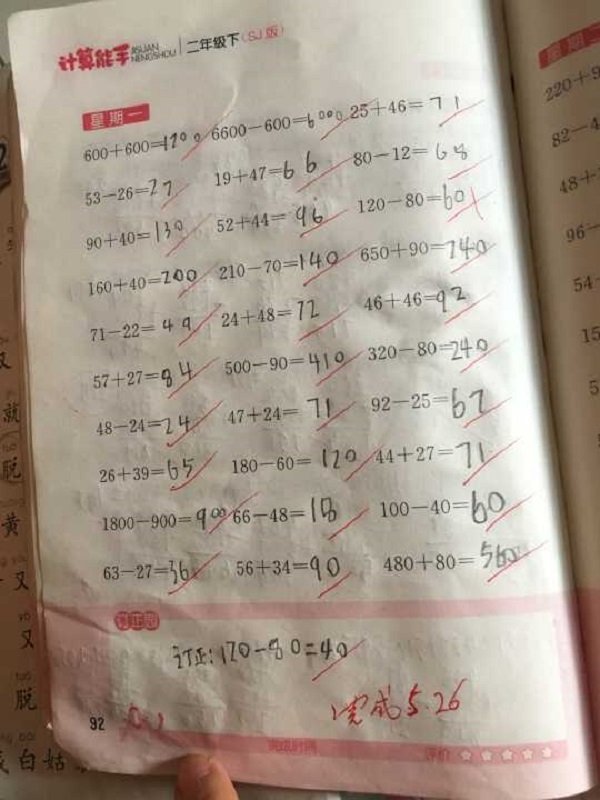 计算能手 JISUAN NENGSHOU 二年级下(SJ版)
星期一
600+600=1200 6600-600=6000 25+46=71
53-26=27 19+47=66 80-12=68
90+40=130 52+44=96 120-80=60
160+40=200 210-70=140 650+90=740
71-22=49 24+48=72 46+46=92
57+27=84 500-90=410 320-80=240
48-24=24 47+24=71 92-25=67
26+39=65 180-60=120 44+27=71
1800-900=900 66-48=18 100-40=60
63-27=36 56+34=90 480+80=560
订正园
订正:120-80=40
完成5.26
92
完成时间 评价
星期二
220+9
82-4
48+
96-
54-
15
5
又
就
脱
黄
又
又
脱
白姑